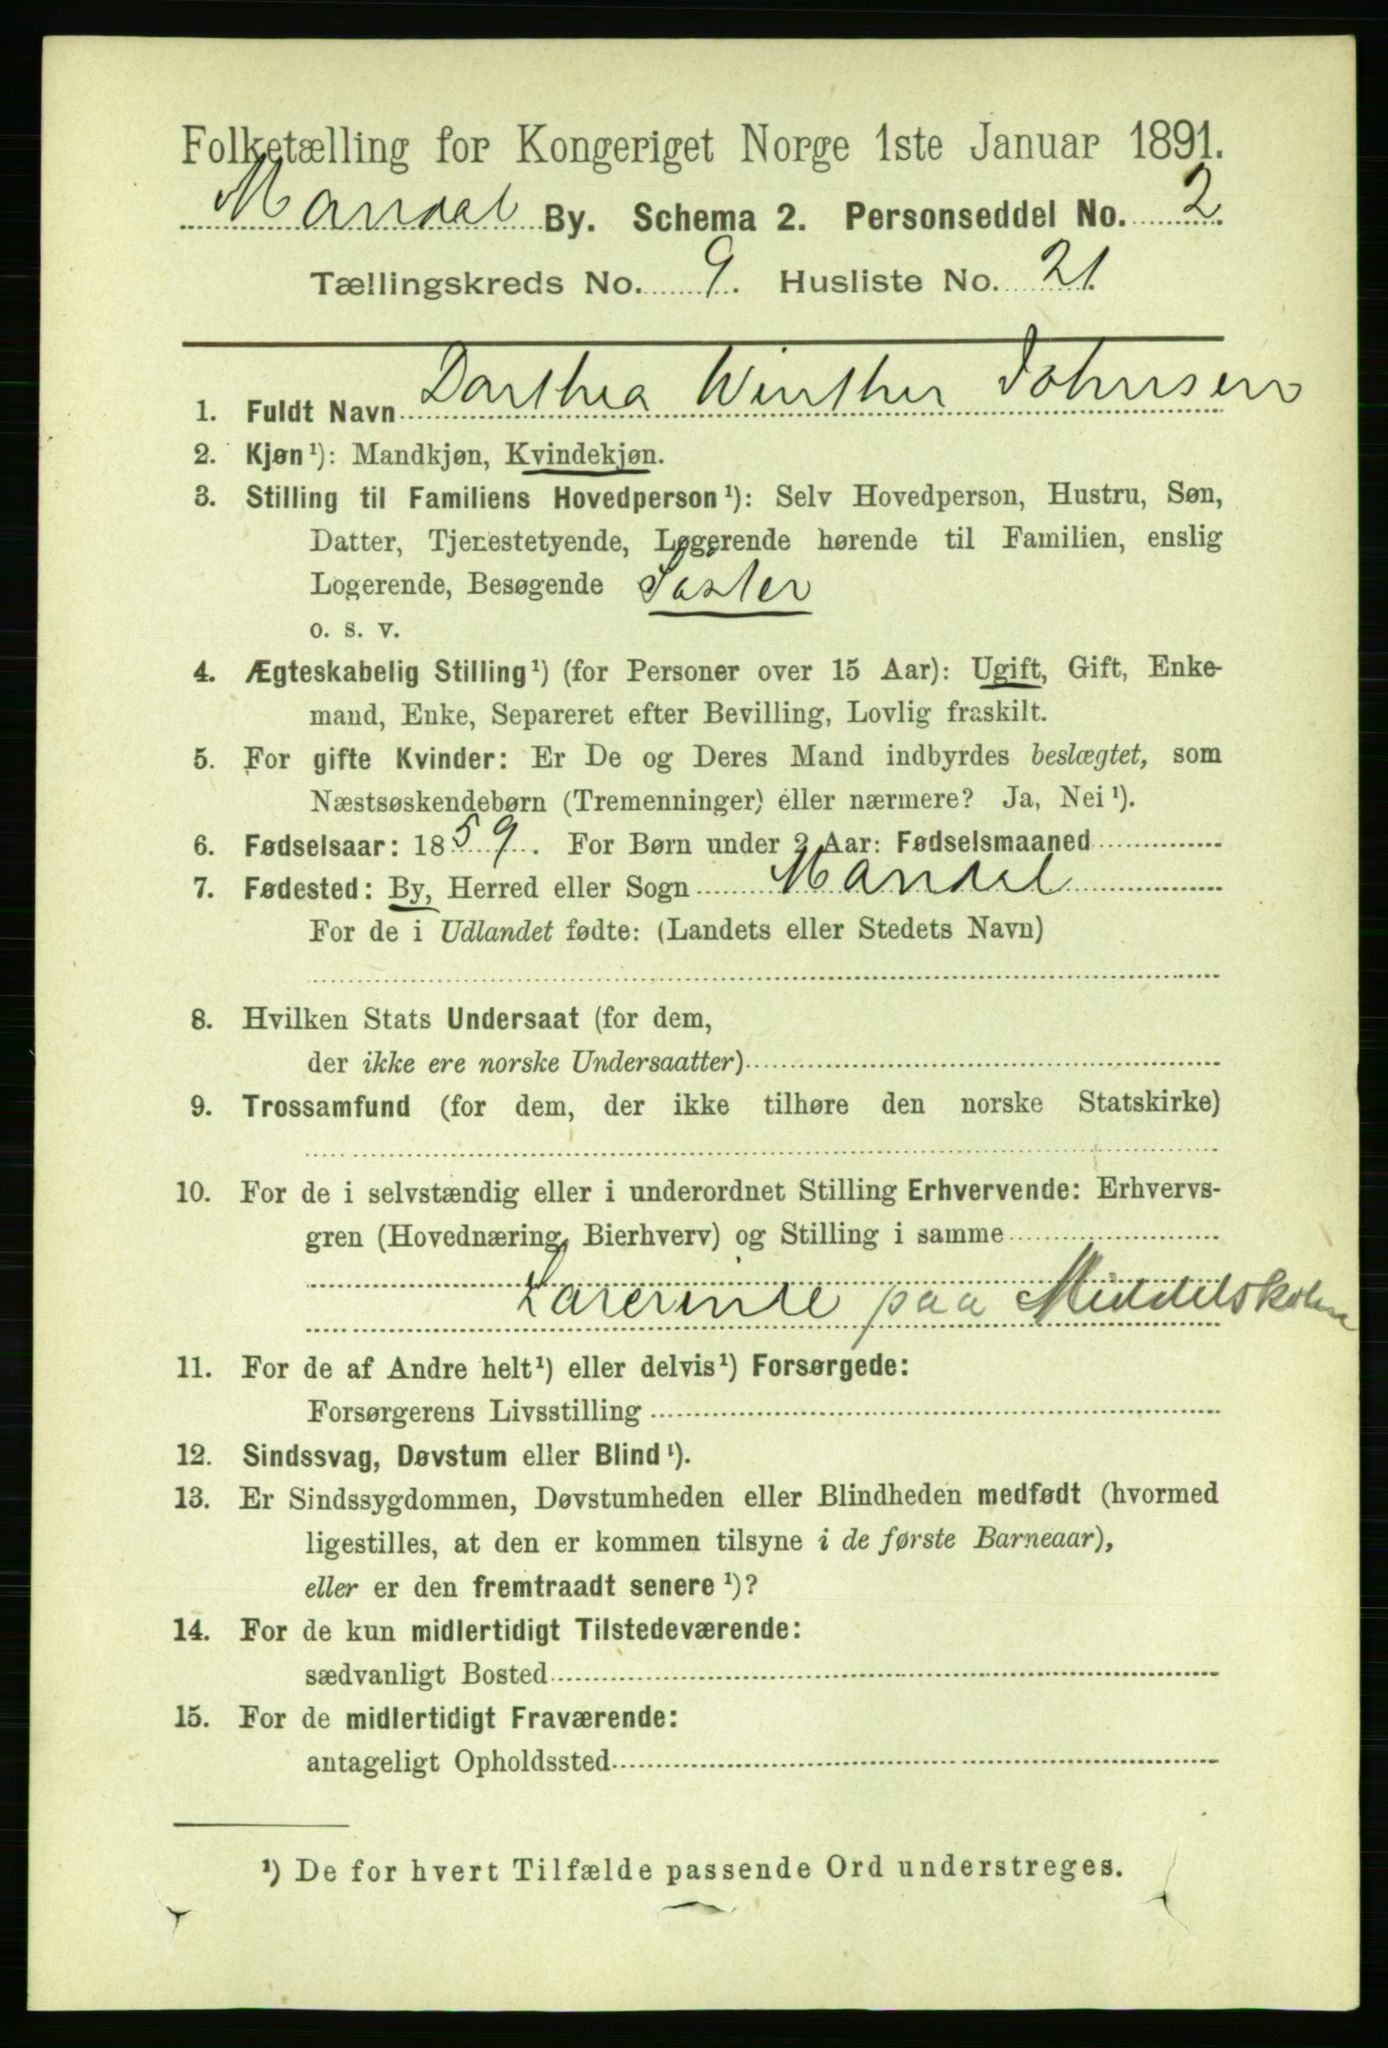 Folketælling for Kongeriget Norge 1ste Januar 1891.
Mandal By. Schema 2. Personseddel No. 2.
Tællingskreds No. 9. Husliste No. 21.
1. Fuldt Navn Dorthea Winther Johnsen
2. Kjøn¹): Mandkjøn, Kvindekjøn.
3. Stilling til Familiens Hovedperson¹): Selv Hovedperson, Hustru, Søn,
Datter, Tjenestetyende, Logerende hørende til Familien, enslig
Logerende, Besøgende Søster
o. s. v.
4. Ægteskabelig Stilling¹) (for Personer over 15 Aar): Ugift, Gift, Enke-
mand, Enke, Separeret efter Bevilling, Lovlig fraskilt.
5. For gifte Kvinder: Er De og Deres Mand indbyrdes beslægtet, som
Næstsøskendebørn (Tremenninger) eller nærmere? Ja, Nei¹).
6. Fødselsaar: 1859. For Børn under 2 Aar: Fødselsmaaned
7. Fødested: By, Herred eller Sogn Mandal
For de i Udlandet fødte: (Landets eller Stedets Navn)
8. Hvilken Stats Undersaat (for dem,
der ikke ere norske Undersaatter)
9. Trossamfund (for dem, der ikke tilhøre den norske Statskirke)
10. For de i selvstændig eller i underordnet Stilling Erhvervende: Erhvervs-
gren (Hovednæring, Bierhverv) og Stilling i samme
Lærerinde paa Middelskolen
11. For de af Andre helt¹) eller delvis¹) Forsørgede:
Forsørgerens Livsstilling
12. Sindssvag, Døvstum eller Blind¹).
13. Er Sindssygdommen, Døvstumheden eller Blindheden medfødt (hvormed
ligestilles, at den er kommen tilsyne i de første Barneaar),
eller er den fremtraadt senere¹)?
14. For de kun midlertidigt Tilstedeværende:
sædvanligt Bosted
15. For de midlertidigt Fraværende:
antageligt Opholdssted
¹) De for hvert Tilfælde passende Ord understreges.